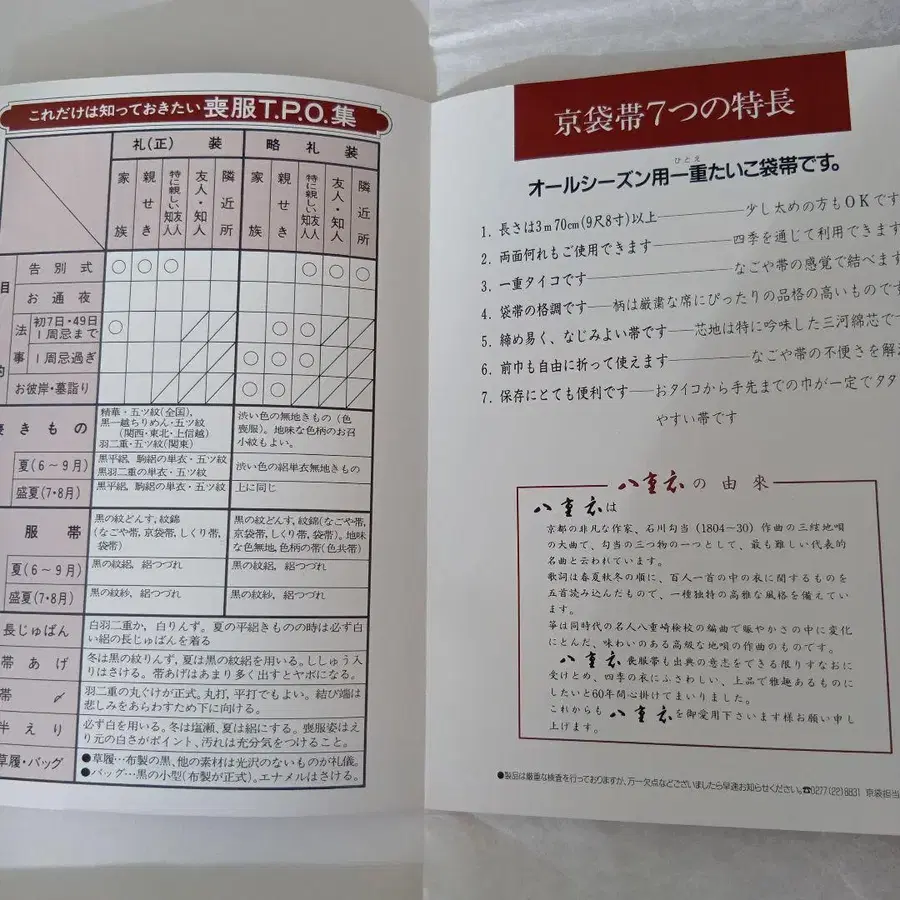 これだけは知っておきたい 喪服T.P.O.集
礼(正)装
略礼装
家族
親せき
特に親しい友人知人
友人・知人
隣近所
家族
親せき
特に親しい友人知人
友人・知人
隣近所
目
的
告別式
○ ○ ○ ○ ○ ○
お通夜
法事
初7日・49日
1周忌まで
○ ○ ○
1周忌過ぎ
○ ○ ○
お彼岸・墓詣り
○ ○
喪きもの
精華・五ツ紋(全国),
黒一越ちりめん・五ツ紋
(関西・東北・上信越)
羽二重・五ツ紋(関東)
渋い色の無地きもの(色
喪服)。地味な色柄のお召
小紋もよい。
夏(6〜9月)
黒平絽, 駒絽の単衣・五ツ紋
黒羽二重の単衣・五ツ紋
渋い色の絽単衣無地きもの
盛夏(7・8月)
黒平絽, 駒絽の単衣・五ツ紋
上に同じ
服帯
黒の紋どんす, 紋錦
(なごや帯, 京袋帯, しくり帯,
袋帯)
黒の紋どんす, 紋錦(なごや帯,
京袋帯, しくり帯, 袋帯)。地味
な色無地, 色柄の帯(色共帯)
夏(6〜9月)
黒の紋絽, 絽つづれ
黒の紋絽, 絽つづれ
盛夏(7・8月)
黒の紋紗, 絽つづれ
黒の紋紗, 絽つづれ
長じゅばん
白羽二重か, 白りんず。夏の平絽きものの時は必ず白
い絽の長じゅばんを着る
帯あげ
冬は黒の紋りんず, 夏は黒の紋絽を用いる。ししゅう入
りはさける。帯あげはあまり多く出すとヤボになる。
帯〆
羽二重の丸ぐけが正式。丸打, 平打でもよい。結び端は
悲しみをあらわすため下に向ける。
半えり
必ず白を用いる。冬は塩瀬、夏は絽にする。喪服姿はえ
り元の白さがポイント、汚れは充分気をつけること。
草履・バッグ
●草履…布製の黒, 他の素材は光沢のないものが礼儀。
●バッグ…黒の小型(布製が正式)。エナメルはさける。
京袋帯7つの特長
オールシーズン用一重たいこ袋帯です。
ひとえ
1. 長さは3m70cm(9尺8寸)以上―――少し太めの方もOKです
2. 両面何れもご使用できます―――四季を通じて利用できます
3. 一重タイコです―――なごや帯の感覚で結べます
4. 袋帯の格調です――柄は厳粛な席にぴったりの品格の高いものです
5. 締め易く、なじみよい帯です――芯地は特に吟味した三河綿芯です
6. 前巾も自由に折って使えます―――なごや帯の不便さを解
7. 保存にとても便利です――おタイコから手先までの巾が一定でタタ
やすい帯です
八重衣の由来
八重衣は
京都の非凡な作家、石川勾当(1804〜30)作曲の三絃地唄
の大曲で、勾当の三つ物の一つとして、最も難しい代表的
名曲と云われています。
歌詞は春夏秋冬の順に、百人一首の中の衣に関するものを
五首読み込んだもので、一種独特の高雅な風格を備えてい
ます。
箏は同時代の名人八重崎検校の編曲で賑やかさの中に変化
にとんだ、味わいのある高級な地唄の作曲のものです。
八重衣喪服帯も出典の意志をできる限りすなおに
受けとめ、四季の衣にふさわしい、上品で雅趣あるものに
したいと60年間心掛けてまいりました。
これからも八重衣を御愛用下さいます様お願い申し
上げます。
●製品は厳重な検査を行っておりますが、万一欠点などございましたら早速お知らせください。☎0277(22)8831 京袋担当